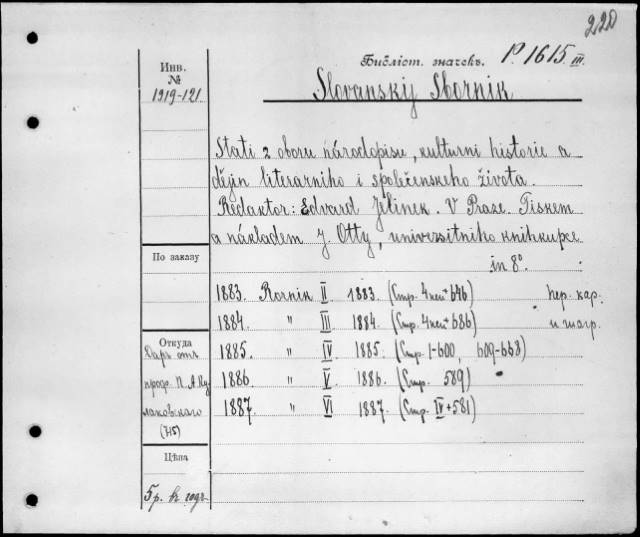 220
Библіот. значекъ. P. 1615 III.
Инв.
№
1919-121
Slovanský Sborník
Stati z oboru národopisu, kulturní historie a
dějin literárního i společenského života.
Redaktor: Edvard Jelínek. V Praze. Tiskem
a nákladem J. Otty, universitního knihkupce
in 8°.
По заказу
1883. Ročník II 1883. (Стр. 4 нен + 646) пер. кар.
1884. " III 1884. (Стр. 4 нен + 686) и шагр.
1885. " IV 1885. (Стр. 1-600, 609-668)
1886 " V 1886. (Стр. 589)
1887. " VI 1887. (Стр. IV + 581)
Откуда
Даръ отъ
проф. П. А. Ку
лаковскаго
(715)
Цѣна
5 р. въ годъ